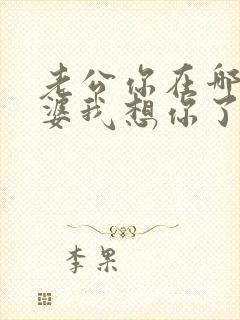 老公你在哪
婆我想你了
李果